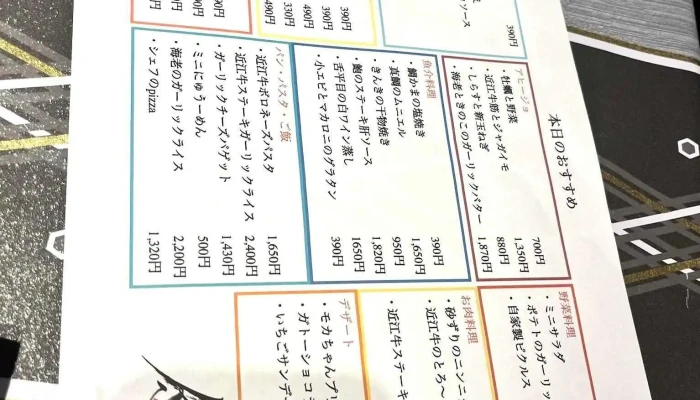 本日のおすすめ
アヒージョ
・牡蠣と野菜 700円
・近江牛筋とジャガイモ 1,350円
・しらすと新玉ねぎ 880円
・海老ときのこのガーリックバター 1,870円
魚介料理
・鯛かまの塩焼き 390円
・真鯛のムニエル 1,650円
・きんきの干物焼き 950円
・鮑のステーキ肝ソース 1,820円
・舌平目の白ワイン蒸し 1650円
・小エビとマカロニのグラタン 390円
パン・パスタ・ご飯
・近江牛ボロネーズパスタ 1,650円
・近江牛ステーキガーリックライス 2,400円
・ガーリックチーズバゲット 1,430円
・ミニにゅうーめん 500円
・海老のガーリックライス 2,200円
・シェフのpizza 1,320円
野菜料理
・ミニサラダ
・ポテトのガーリッ
・自家製ピクルス
お肉料理
・砂ずりのニンニ
・近江牛のとろ～
・近江牛ステーキ
デザート
・モカちゃんプリ
・ガトーショコラ
・いちごサンデー
ソース
390円
390円
390円
490円
330円
490円